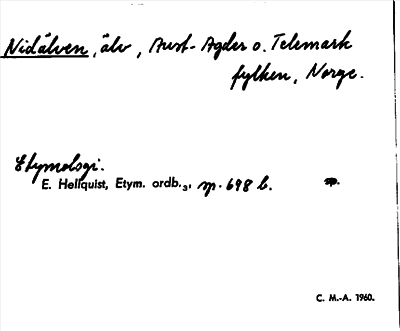 Nidälven, älv, Aust-Agder o. Telemark
fylken, Norge.
Etymologi.
E. Hellquist, Etym. ordb.₃, sp. 698 b.
C. M.-A. 1960.